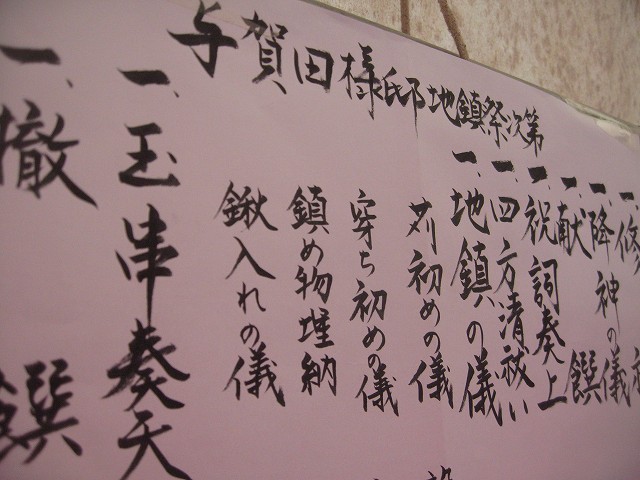 与賀田様邸地鎮祭次第
一、修
一、降神の儀
一、献饌
一、祝詞奏上
一、四方清祓い
一、地鎮の儀
刈初めの儀
穿ち初めの儀
鎮め物埋納
鍬入れの儀
一、玉串奏天
一、撤饌